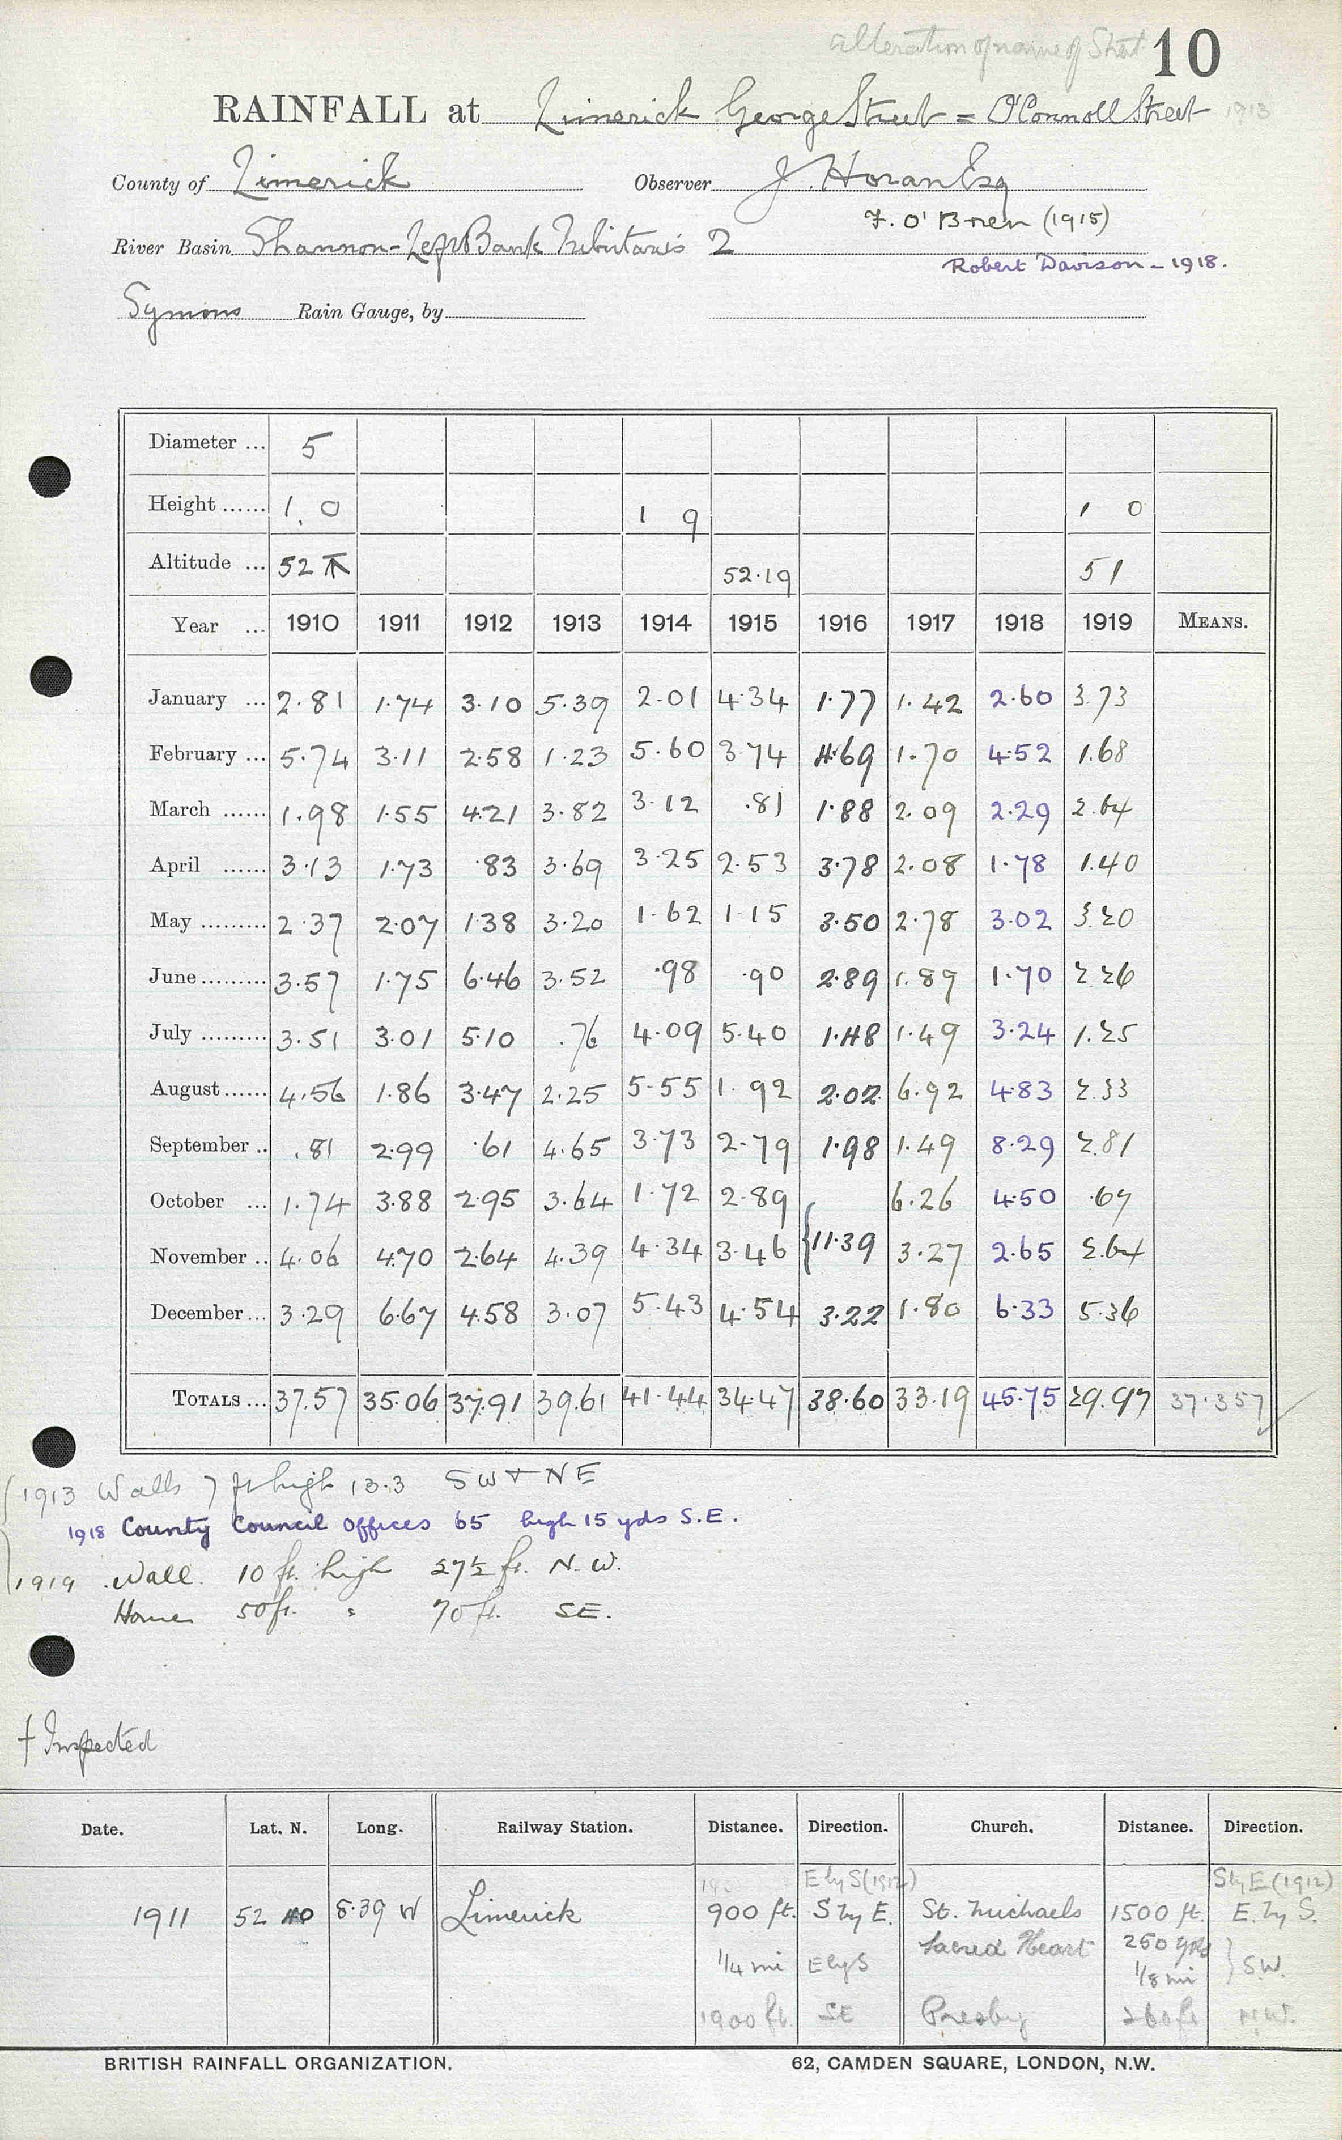 alteration of name of Street 10
RAINFALL at Limerick George Street = O'Connell Street 1913
County of Limerick Observer J. Horan Esq
F. O'Brien (1915)
River Basin Shannon-Left Bank Tributaries 2
Robert Davison - 1918.
Symons Rain Gauge, by
Diameter ... 5
Height ...... 1. 0 1 9 1 0
Altitude ... 52 52.19 51
Year ... 1910 1911 1912 1913 1914 1915 1916 1917 1918 1919 MEANS.
January ... 2.81 1.74 3.10 5.39 2.01 4.34 1.77 1.42 2.60 3.73
February ... 5.74 3.11 2.58 1.23 5.60 3.74 4.69 1.70 4.52 1.68
March ...... 1.98 1.55 4.21 3.82 3.12 .81 1.88 2.09 2.29 2.64
April ...... 3.13 1.73 .83 3.69 3.25 2.53 3.78 2.08 1.78 1.40
May ......... 2.37 2.07 1.38 3.20 1.62 1.15 3.50 2.78 3.02 3.20
June ......... 3.57 1.75 6.46 3.52 .98 .90 2.89 1.89 1.70 2.26
July ......... 3.51 3.01 5.10 .76 4.09 5.40 1.48 1.49 3.24 1.25
August ...... 4.56 1.86 3.47 2.25 5.55 1.92 2.02 6.92 4.83 2.33
September .. .81 2.99 .61 4.65 3.73 2.79 1.98 1.49 8.29 2.81
October ... 1.74 3.88 2.95 3.64 1.72 2.89 6.26 4.50 .67
November .. 4.06 4.70 2.64 4.39 4.34 3.46 {11.39 3.27 2.65 2.64
December ... 3.29 6.67 4.58 3.07 5.43 4.54 3.22 1.80 6.33 5.36
TOTALS ... 37.57 35.06 37.91 39.61 41.44 34.47 38.60 33.19 45.75 29.97 37.357
(1913 Walls 7 ft high 13.3 SW + NE
1918 County Council Offices 65 high 15 yds S.E.
1919 Wall. 10 ft. high 27½ ft. N.W.
House 50 ft. " 70 ft. SE.
† Inspected
Date. Lat. N. Long. Railway Station. Distance. Direction. Church. Distance. Direction.
E by S (1912) S by E (1912)
1911 52 40 8.39 W Limerick 900 ft. S by E. St. Michaels 1500 ft. E. by S.
Sacred Heart 250 yds
¼ mi E by S ⅛ mi } S.W.
1900 ft. SE Presby N.W.
BRITISH RAINFALL ORGANIZATION. 62, CAMDEN SQUARE, LONDON, N.W.